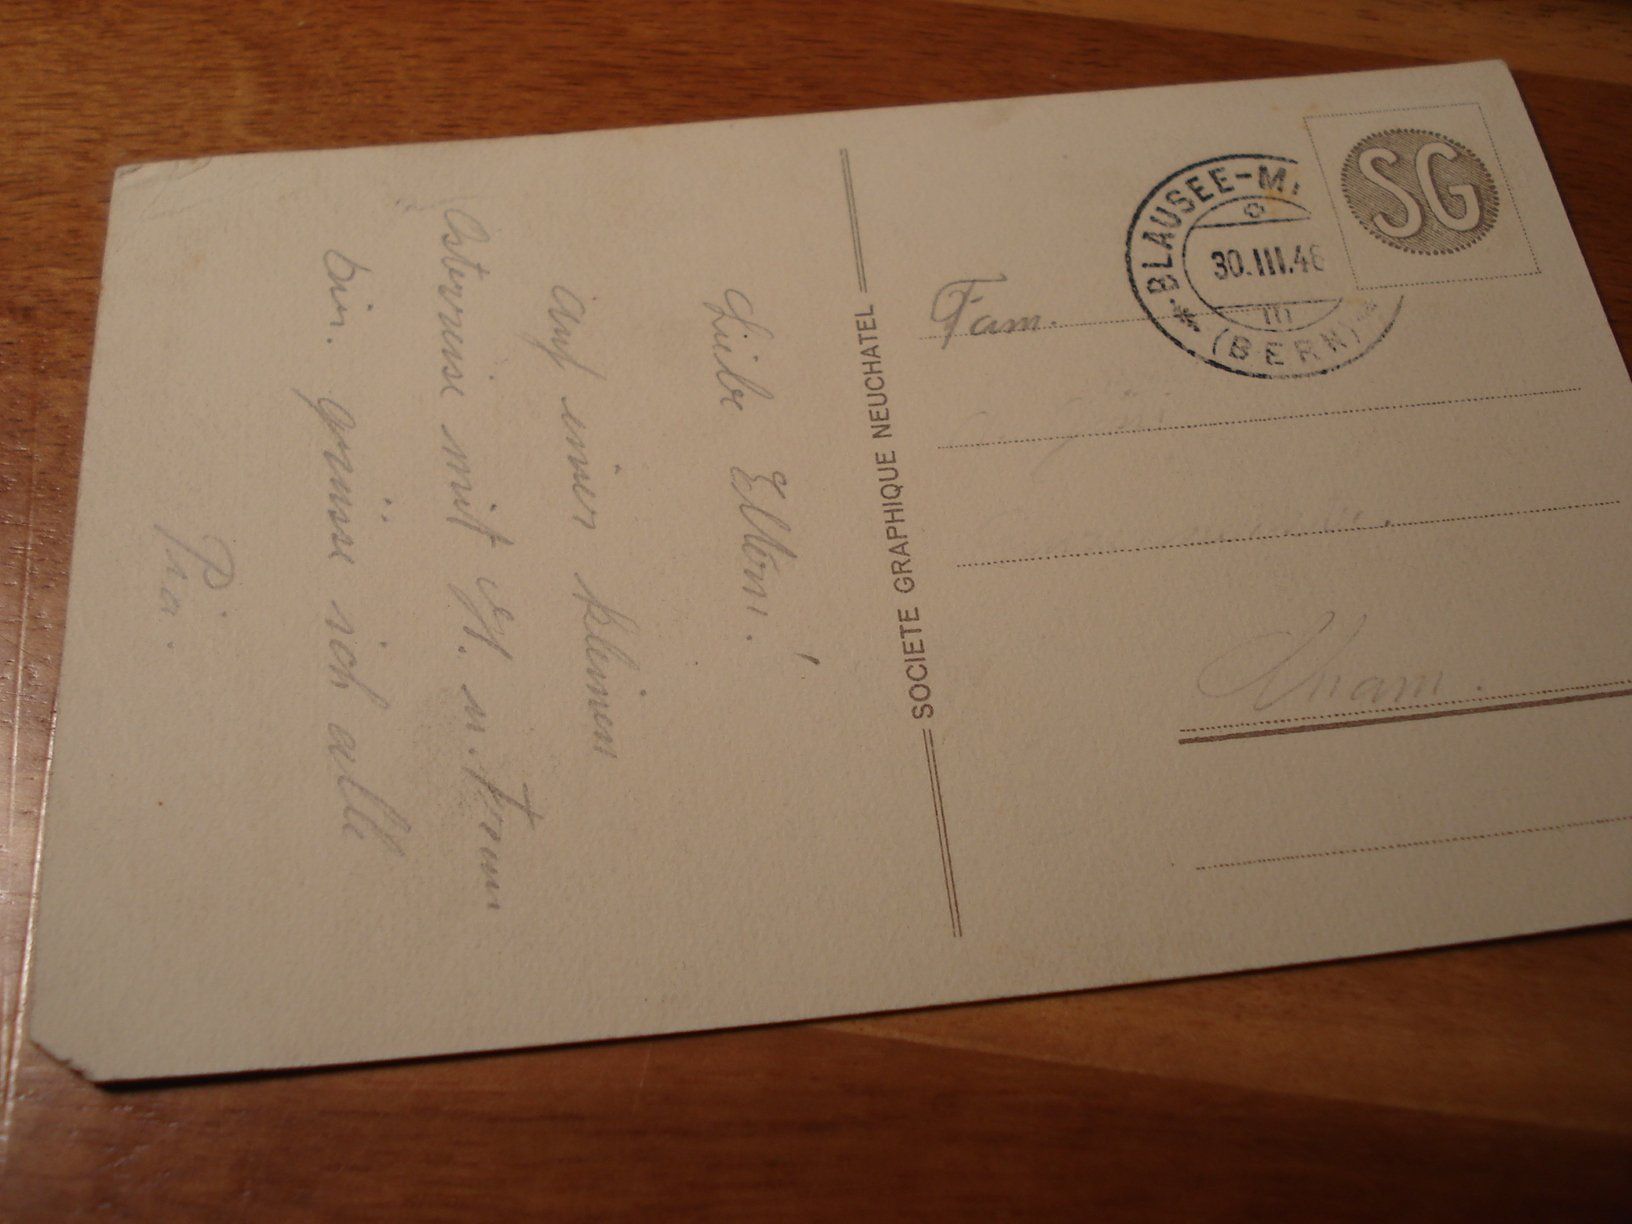 Liebe Eltern!
Auf einer kleinen
Osterreise mit
bin. grüsse ich alle
Pia.
SOCIETE GRAPHIQUE NEUCHATEL
BLAUSEE-MI
30.III.48
(BERN)
SG
Fam.
Cham.